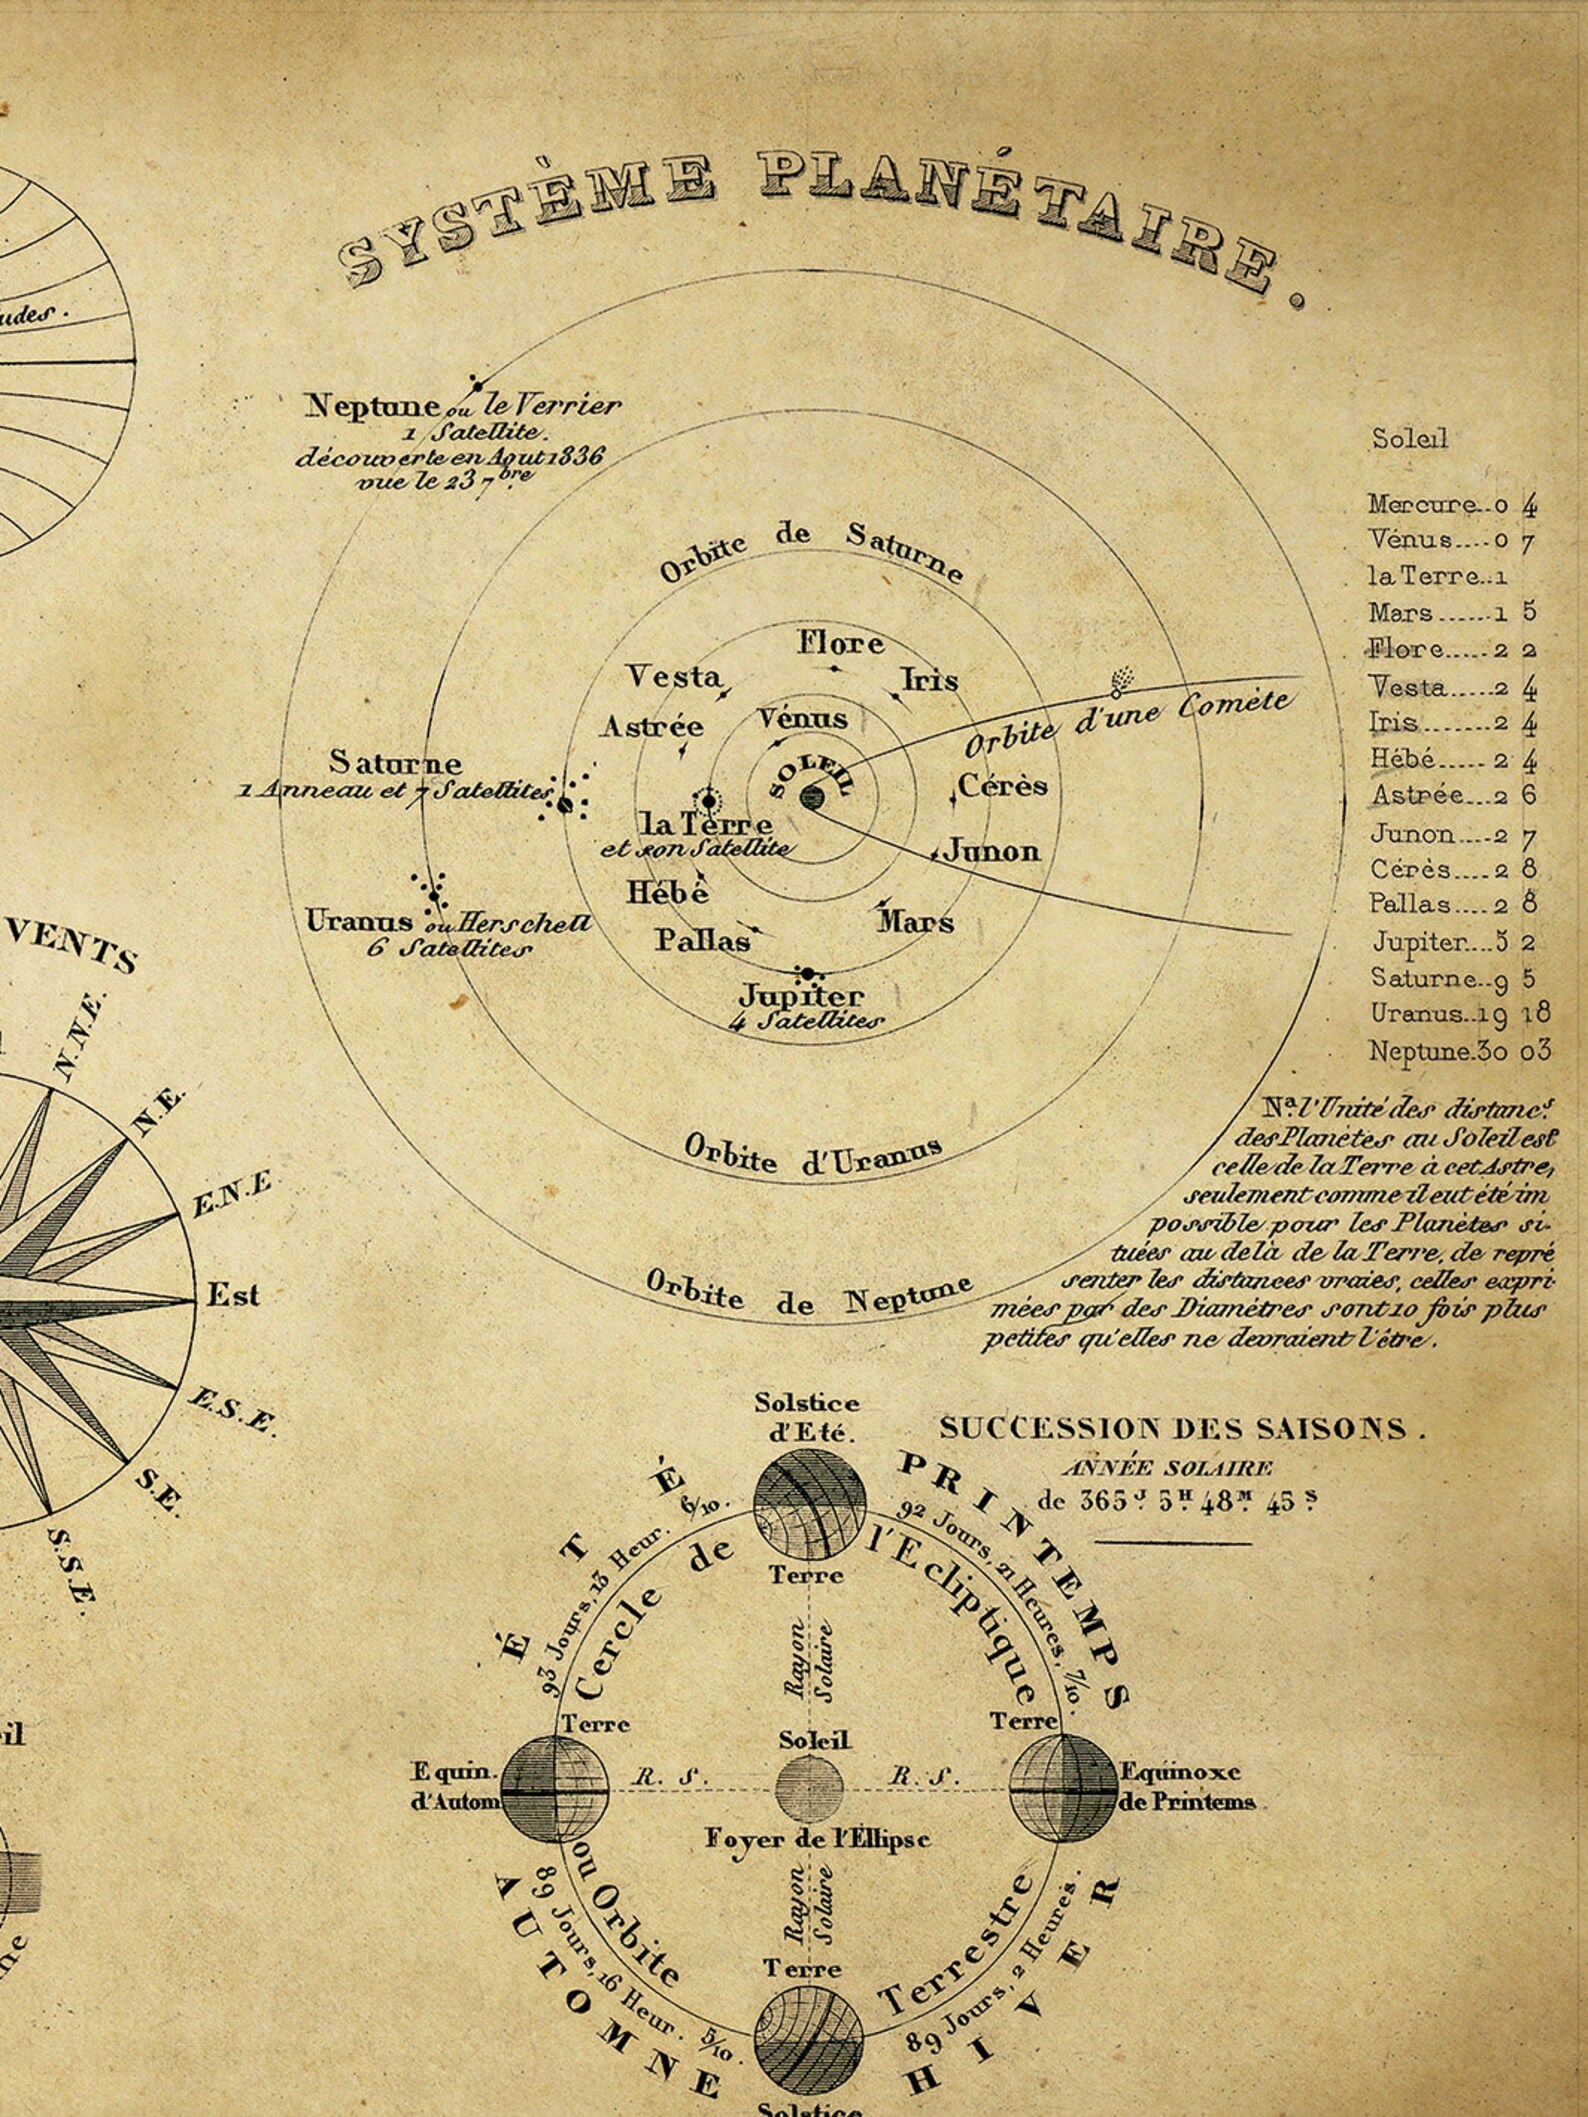 SYSTÈME PLANÉTAIRE.
udes.
Neptune ou le Verrier
1 Satellite.
découverte en Aout 1836
vue le 23 7bre
Orbite de Saturne
Flore
Vesta
Iris
Astrée
Vénus
SOLEIL
Orbite d'une Comète
Saturne
1 Anneau et 7 Satellites
Cérès
la Terre
et son Satellite
Junon
Hébé
Uranus ou Herschell
6 Satellites
Mars
Pallas
Jupiter
4 Satellites
Orbite d'Uranus
Orbite de Neptune
Soleil
Mercure..0 4
Vénus....0 7
la Terre..1
Mars......1 5
Flore.....2 2
Vesta.....2 4
Iris.......2 4
Hébé.....2 4
Astrée...2 6
Junon....2 7
Cérès....2 8
Pallas....2 8
Jupiter...5 2
Saturne..9 5
Uranus..19 18
Neptune.30 03
Na. l'Unité des distancs.
des Planètes au Soleil est
celle de la Terre à cet Astre,
seulement comme il eut été im
possible pour les Planètes si-
tuées au delà de la Terre, de repré
senter les distances vraies, celles expri-
mées par des Diamètres sont 10 fois plus
petites qu'elles ne devraient l'être.
VENTS
N.N.E.
N.E.
E.N.E
Est
E.S.E.
S.E.
S.S.E.
SUCCESSION DES SAISONS.
ANNÉE SOLAIRE
de 365J. 5H. 48M. 45S.
Solstice
d'Eté.
ÉTÉ
93 Jours, 13 Heur. 6/10.
PRINTEMPS
92 Jours, 21 Heures, 7/10.
Cercle de l'Ecliptique
Terre
Rayon
Solaire
Terre
Terre
Soleil
Equin.
d'Autom
R. S.
R. S.
Equinoxe
de Printems
Foyer de l'Ellipse
Rayon
Solaire
ou Orbite Terrestre
AUTOMNE
89 Jours, 16 Heur. 5/10.
HIVER
89 Jours, 2 Heures.
Terre
Solstice